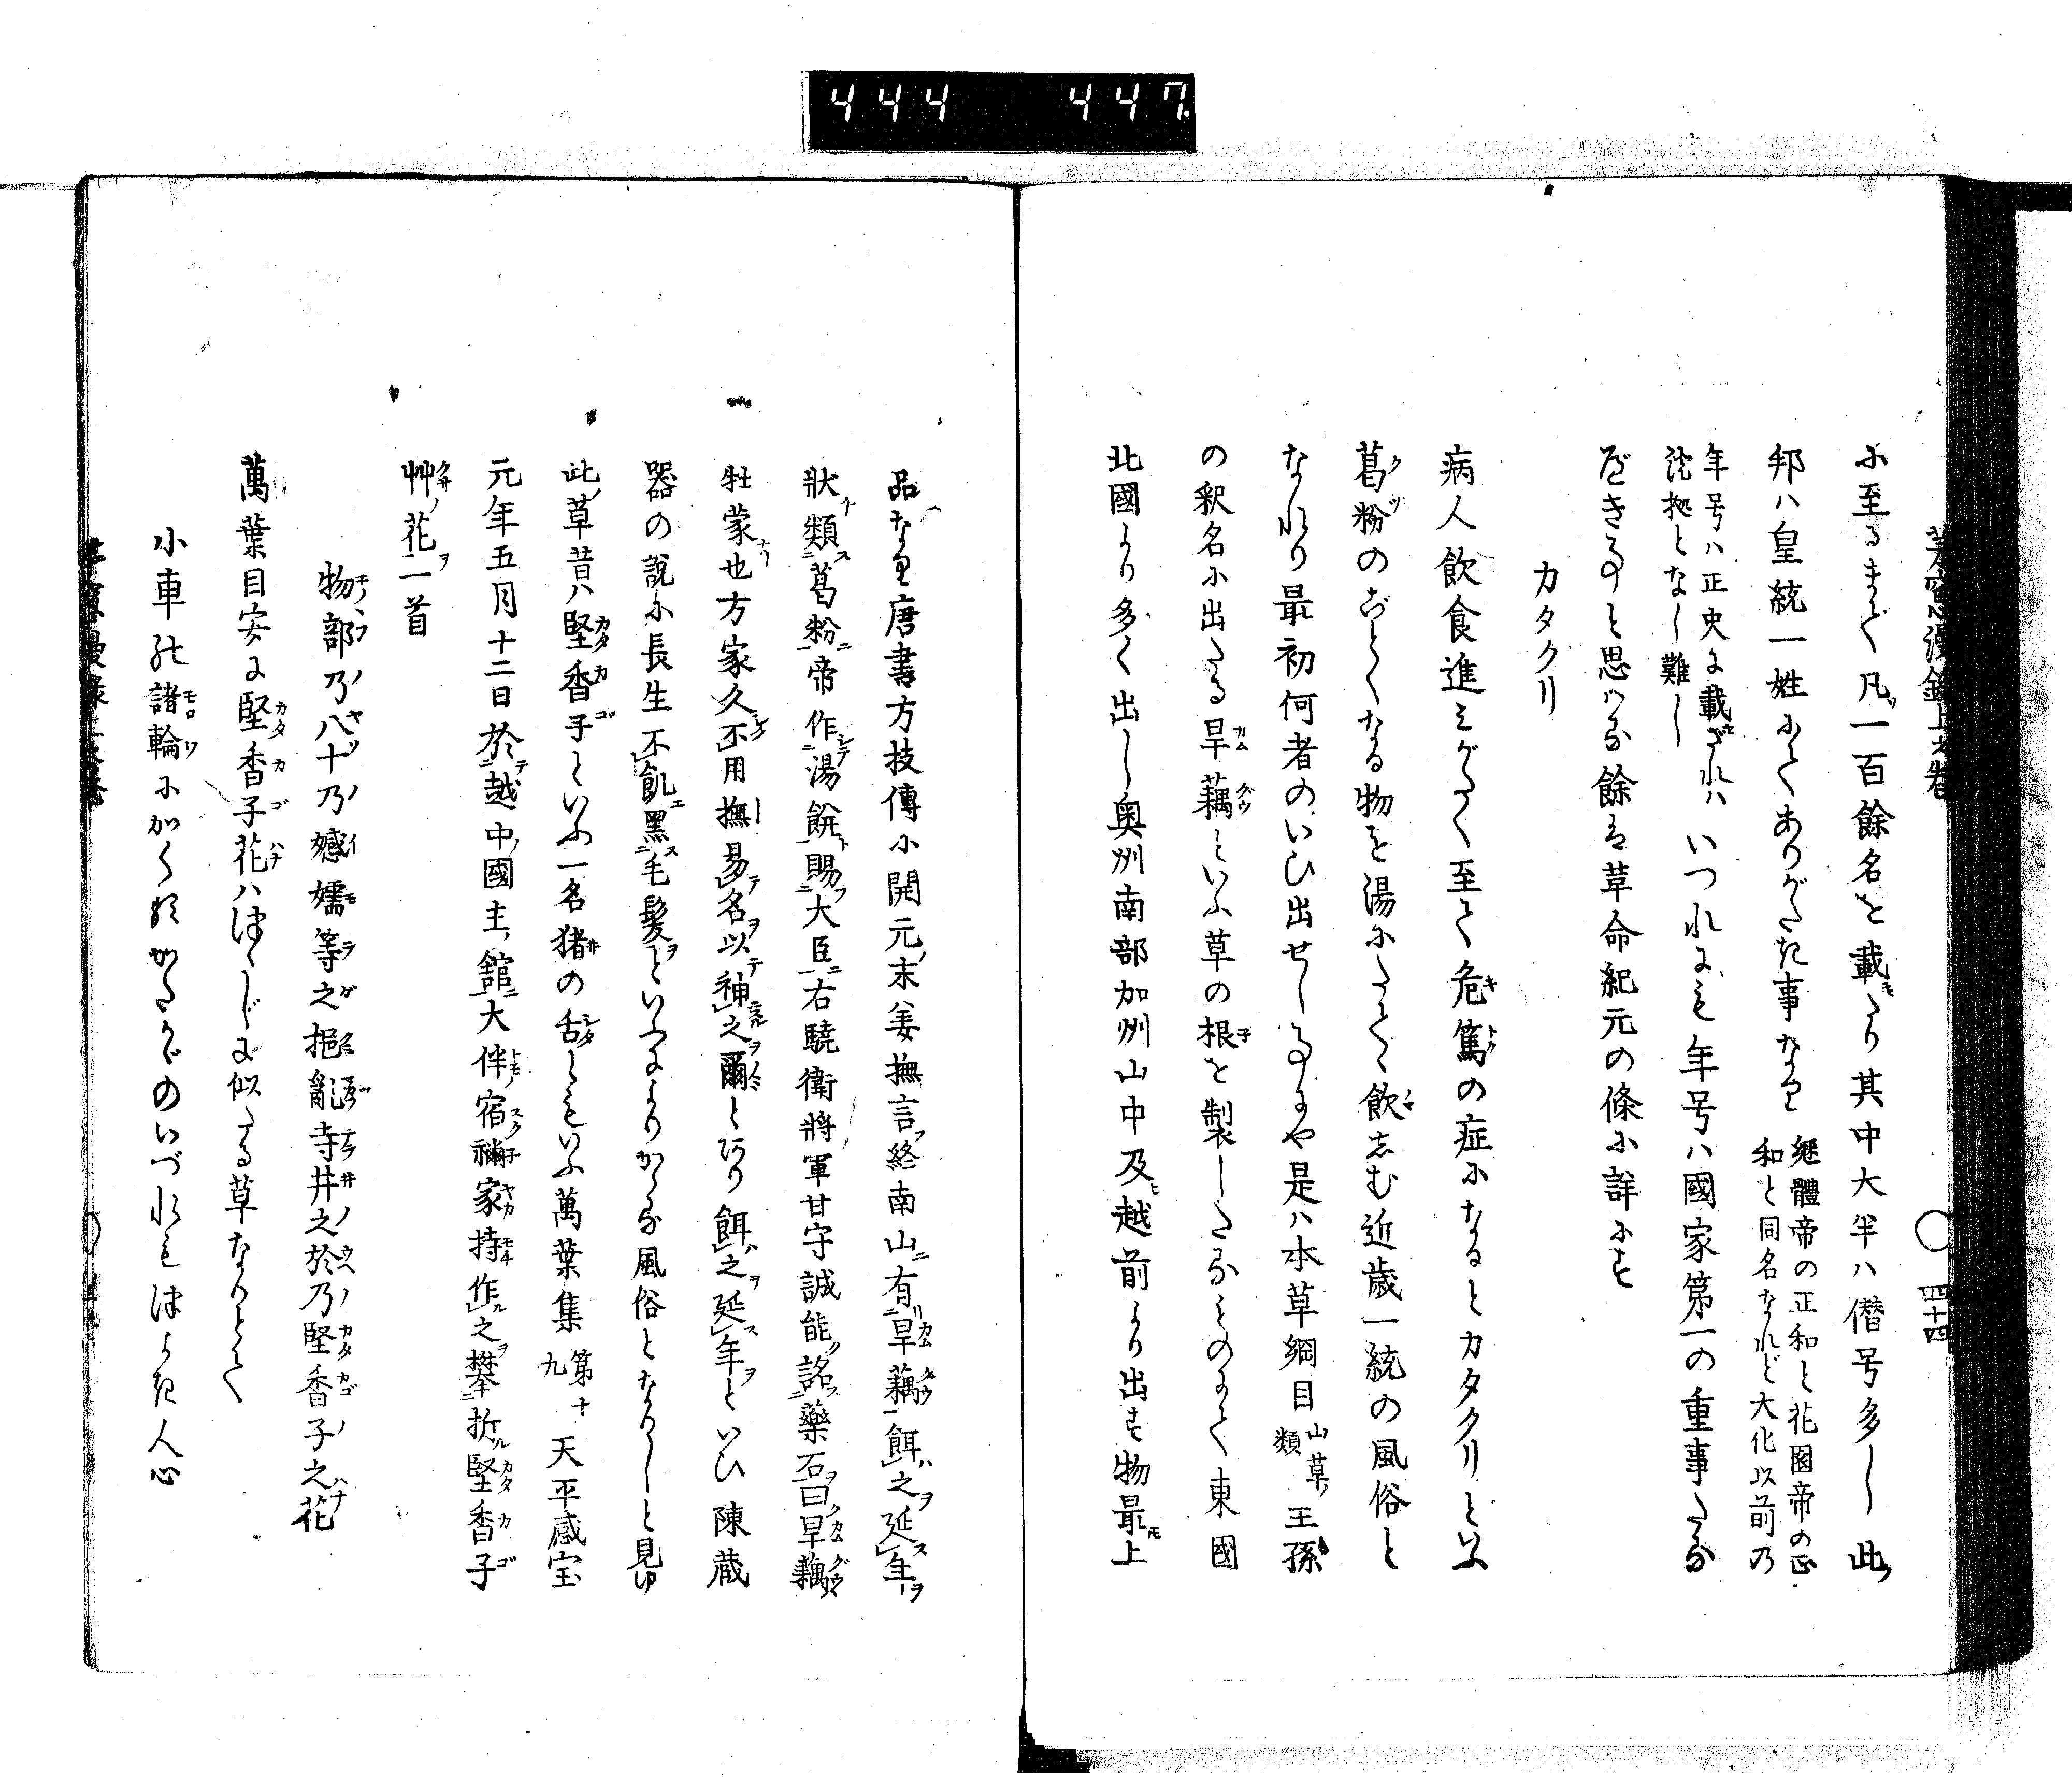 444 447
四十四
に至るまで凡一百餘名を載たり其中大半ハ僭号多し此
邦ハ皇統一姓にてありがたき事なり
継體帝の正和と花園帝の正
和と同名なれど大化以前乃
年号ハ正史に載ざれハ
證拠となし難し
いつれにも年号ハ國家第一の重事たる
べきことと思ハる餘は草命紀元の條に詳にす
カタクリ
病人飲食進ミがたく至て危篤の症になるとカタクリといふ
葛粉のごとくなる物を湯にたてゝ飲志む近歳一統の風俗と
なれり最初何者のいひ出せしことにや是ハ本草綱目
山草ノ
類
王孫
の釈名に出たる旱藕といふ草の根を製したるものにて東國
北國より多く出し奥州南部加州山中及越前より出す物最上
品なり唐書方技傳に開元末姜撫言終南山有旱藕餌之延生
狀類葛粉帝作湯餅賜大臣右驍衛將軍甘守誠能詺藥石曰旱藕
牡蒙也方家久不用撫易名以神之爾とあり餌之延年といひ陳蔵
器の說に長生不飢黑毛髮といふによりかゝる風俗となりしと見ゆ
此草昔ハ堅香子といふ一名猪の舌ともいふ萬葉集
第十
九
天平感宝
元年五月十二日於越中國主館大伴宿禰家持作之攀折堅香子
艸花一首
物部乃八十乃嬺嬬等之挹亂寺井之於乃堅香子之花
萬葉目安に堅香子花ハつくしに似たる草なりとて
小車の諸輪にかくるかたかごのいづれもつよき人心